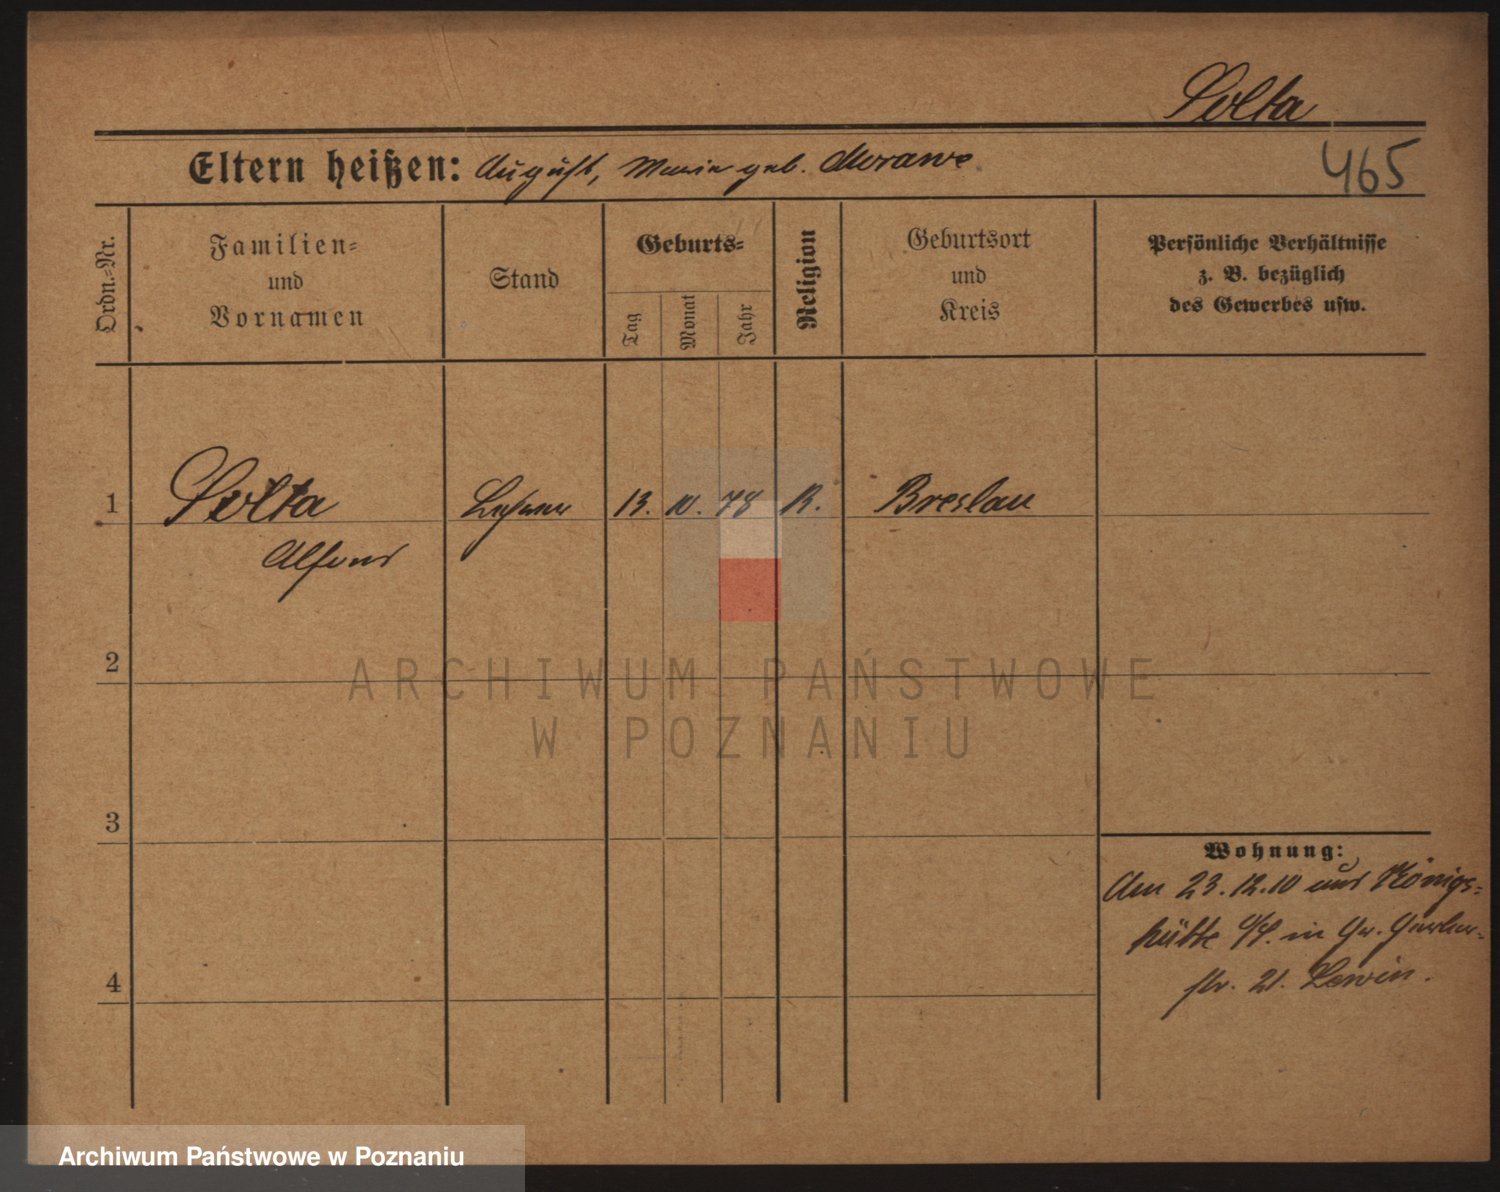 Solta
Eltern heißen: August, Marie geb. Morawe
465
Ordn.-Nr.
Familien-
und
Vornamen
Stand
Geburts-
Tag
Monat
Jahr
Religion
Geburtsort
und
Kreis
Persönliche Verhältnisse
z. B. bezüglich
des Gewerbes usw.
1 Solta 13. 10. 78 K. Breslau
Alfons
2
3
4
Wohnung:
Am 23.12.10 aus Königs-
hütte O/S. in Gr. Gerber-
str. 21. Lewin.
ARCHIWUM PAŃSTWOWE
W POZNANIU
Archiwum Państwowe w Poznaniu